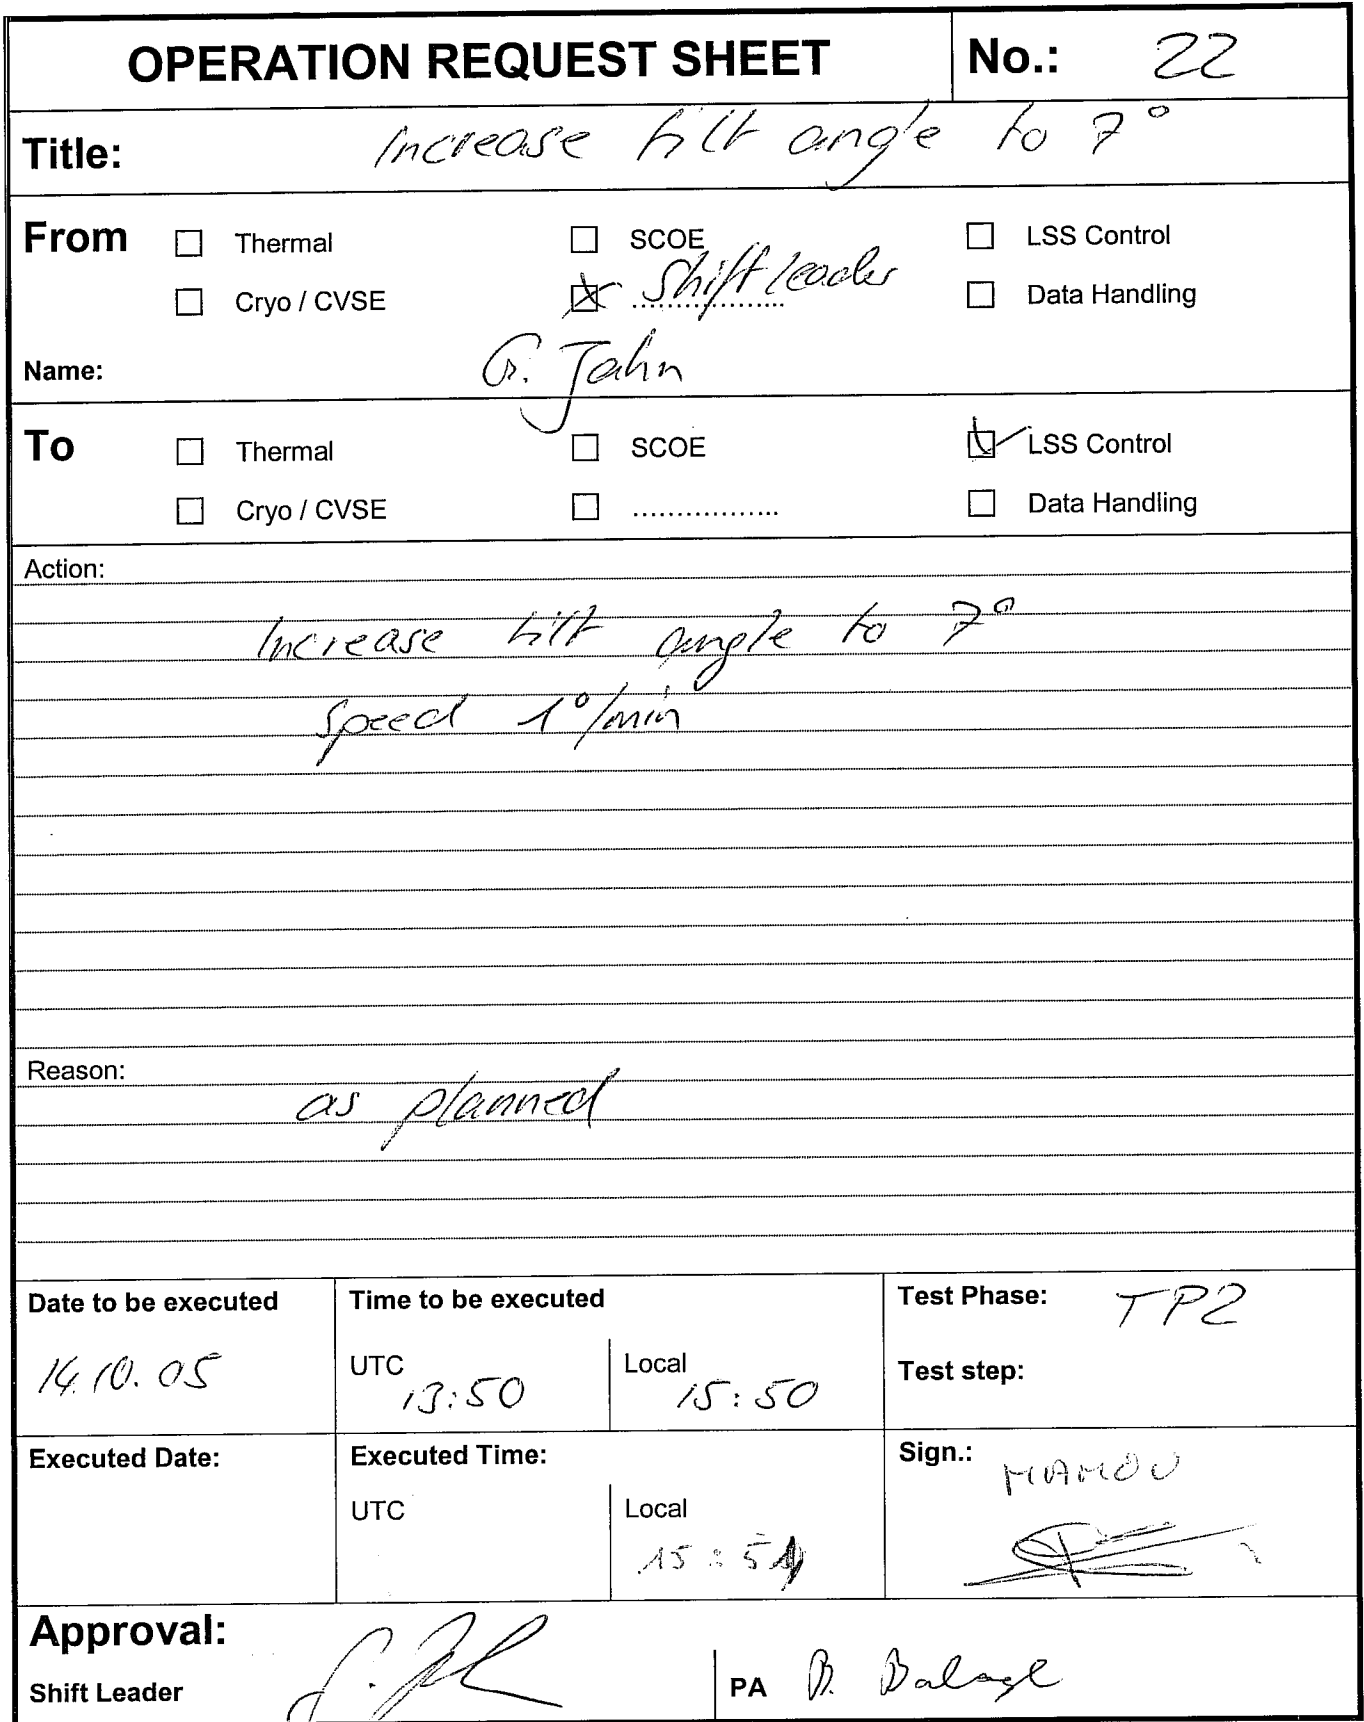 OPERATION REQUEST SHEET No.: 22
Title: Increase tilt angle to 7°
From ☐ Thermal ☐ SCOE ☐ LSS Control
☐ Cryo / CVSE ☒ Shift leader ☐ Data Handling
Name: G. Jahn
To ☐ Thermal ☐ SCOE ☑ LSS Control
☐ Cryo / CVSE ☐ ................. ☐ Data Handling
Action:
Increase tilt angle to 7°
Speed 1°/min
Reason:
as planned
Date to be executed Time to be executed Test Phase: TP2
14.10.05 UTC 13:50 Local 15:50 Test step:
Executed Date: Executed Time: Sign.:
UTC Local 15:51
Approval:
Shift Leader PA B.